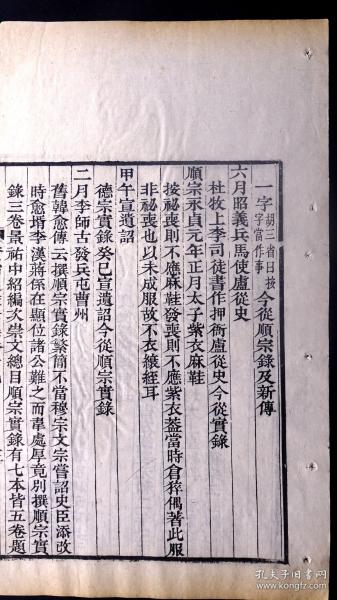 一字胡三省曰按字當作事今從順宗錄及新傳
六月昭義兵馬使盧從史
杜牧上李司徒書作押衙盧從史今從實錄
順宗永貞元年正月太子紫衣麻鞋
按祕喪則不應麻鞋發喪則不應紫衣葢當時倉猝偶著此服
非祕喪也以未成服故不衣縗絰耳
甲午宣遺詔
德宗實錄癸巳宣遺詔今從順宗實錄
二月李師古發兵屯曹州
舊韓愈傳云撰順宗實錄繁簡不當穆宗文宗嘗詔史臣添改
時愈壻李漢蔣係在顯位諸公難之而韋處厚竟別撰順宗實
錄三卷景祐中紹編次崇文總目順宗實錄有七本皆五卷題
孔夫子旧书网